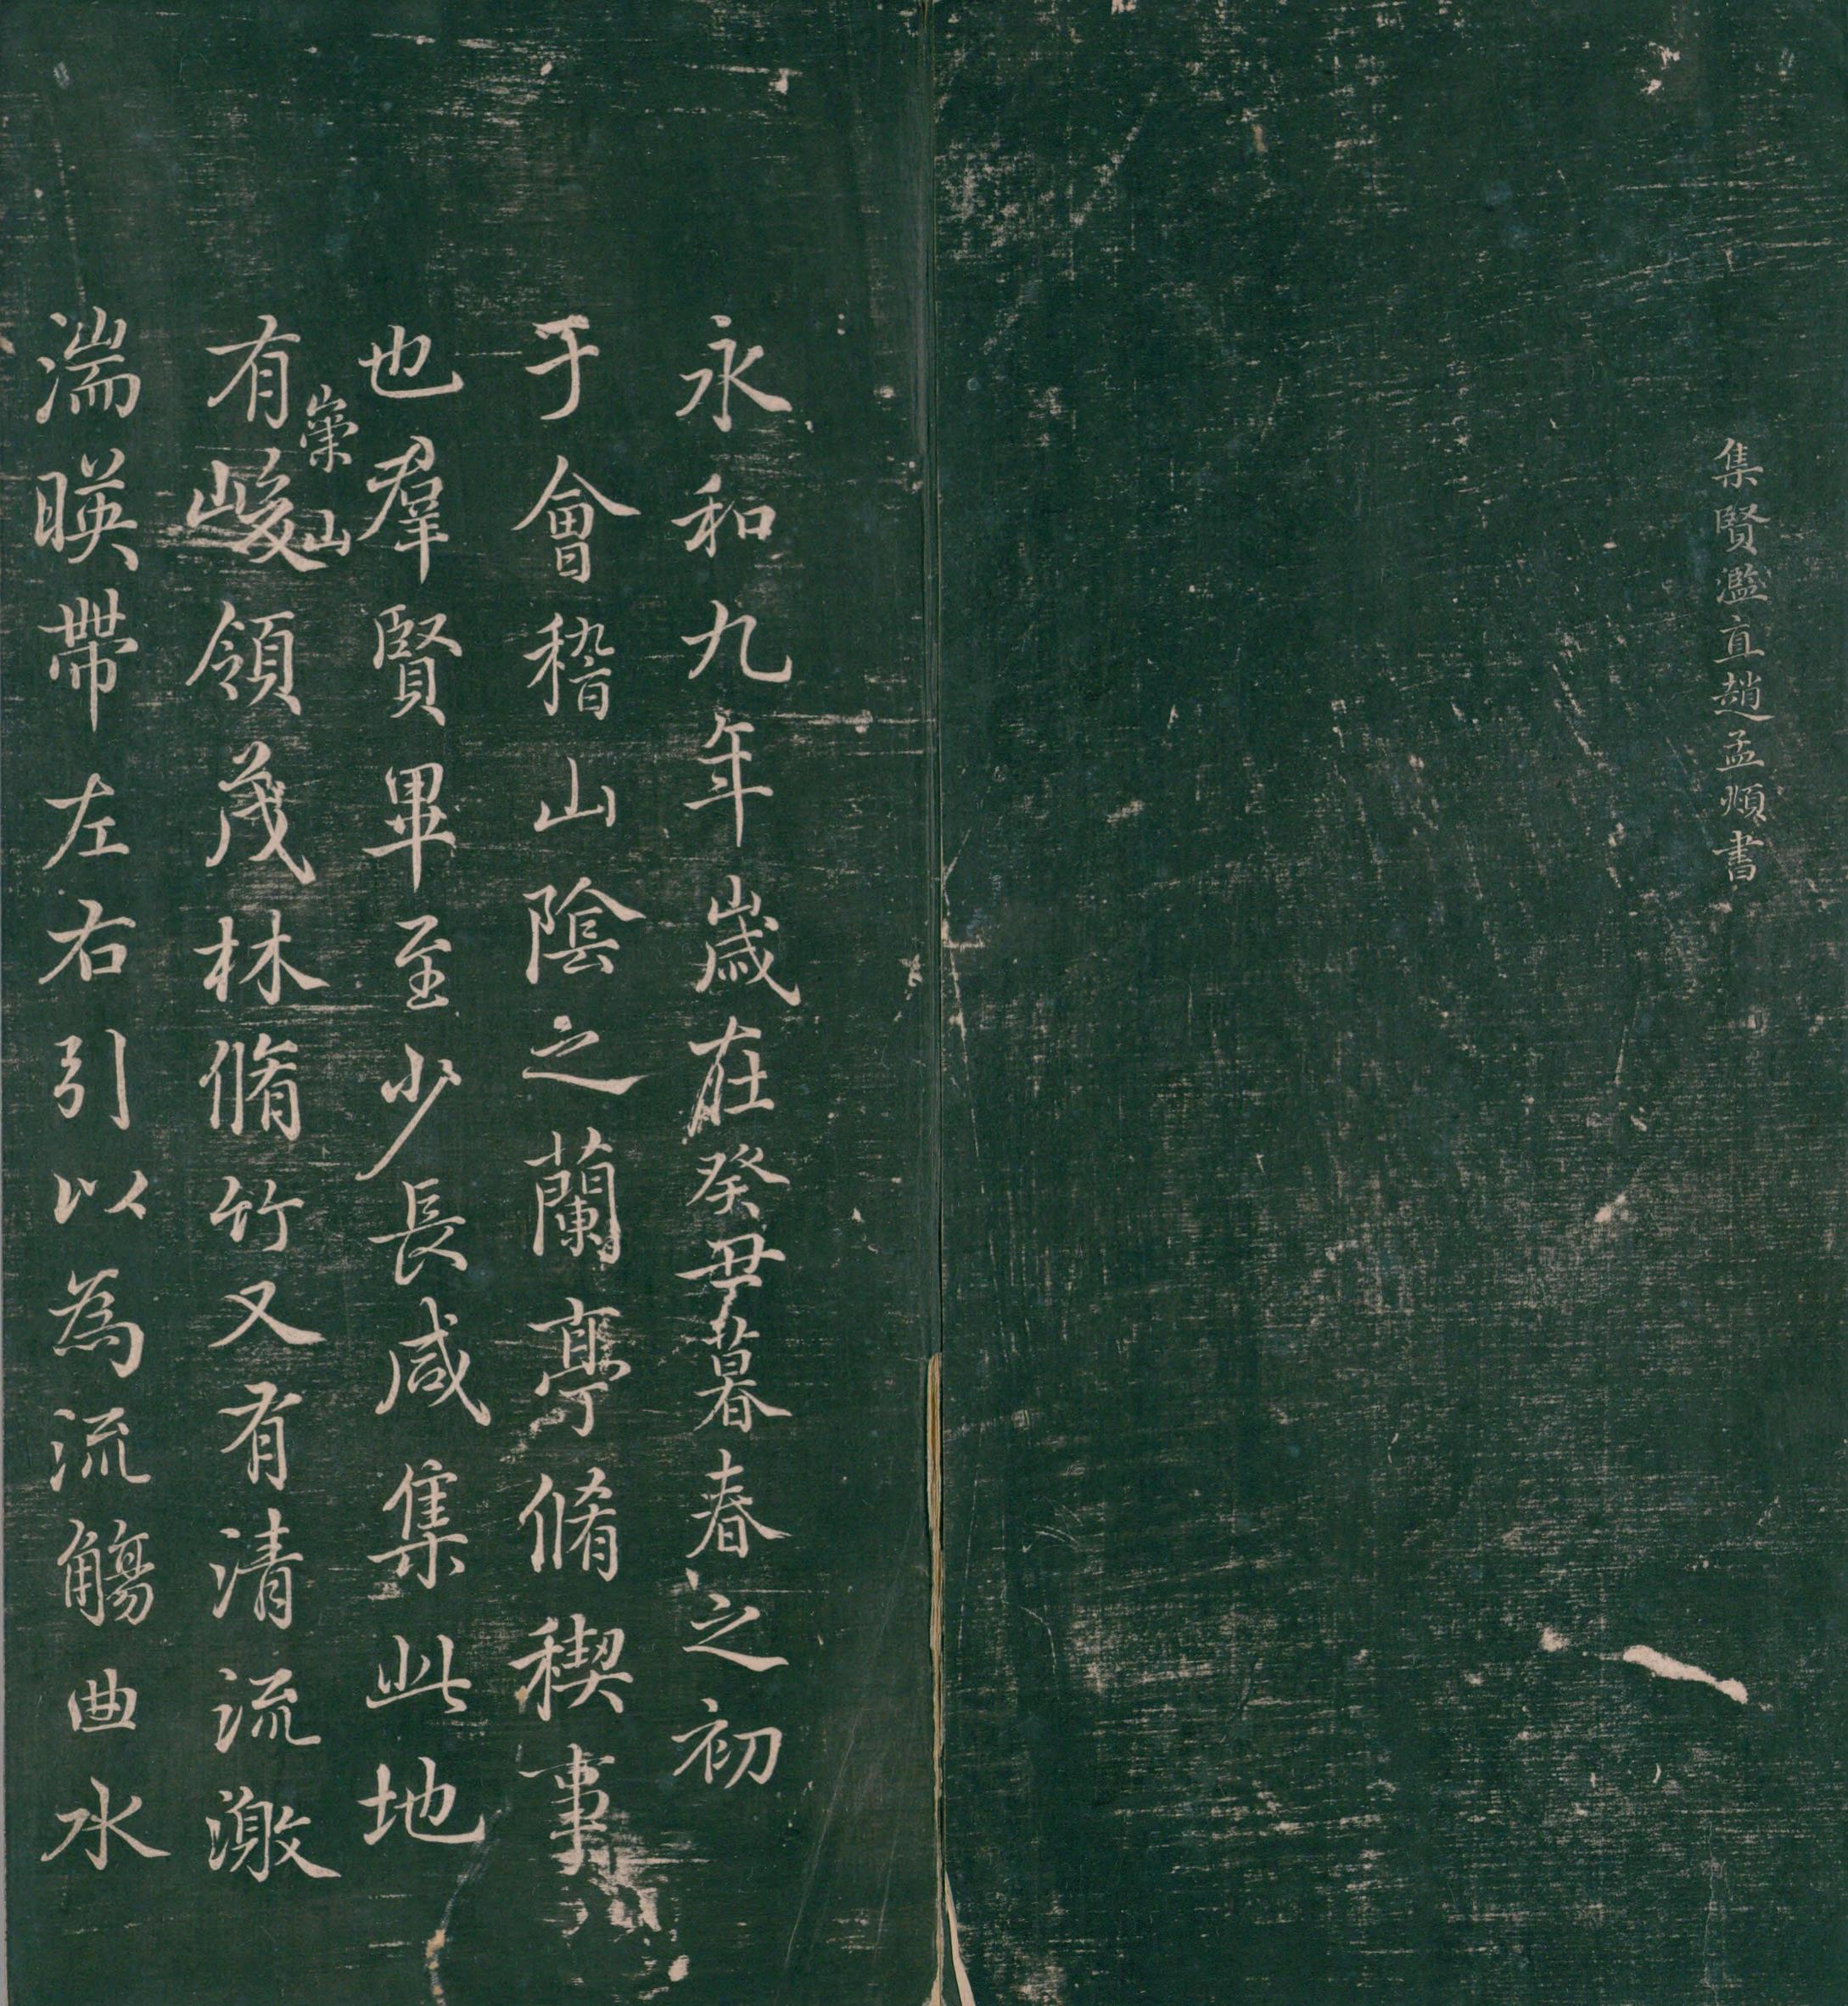 集賢濫直趙孟頫書
永和九年歲在癸丑暮春之初
于會稽山陰之蘭亭脩稧事
也羣賢畢至少長咸集此地
有崇山峻領茂林脩竹又有清流激
湍暎帶左右引以為流觴曲水